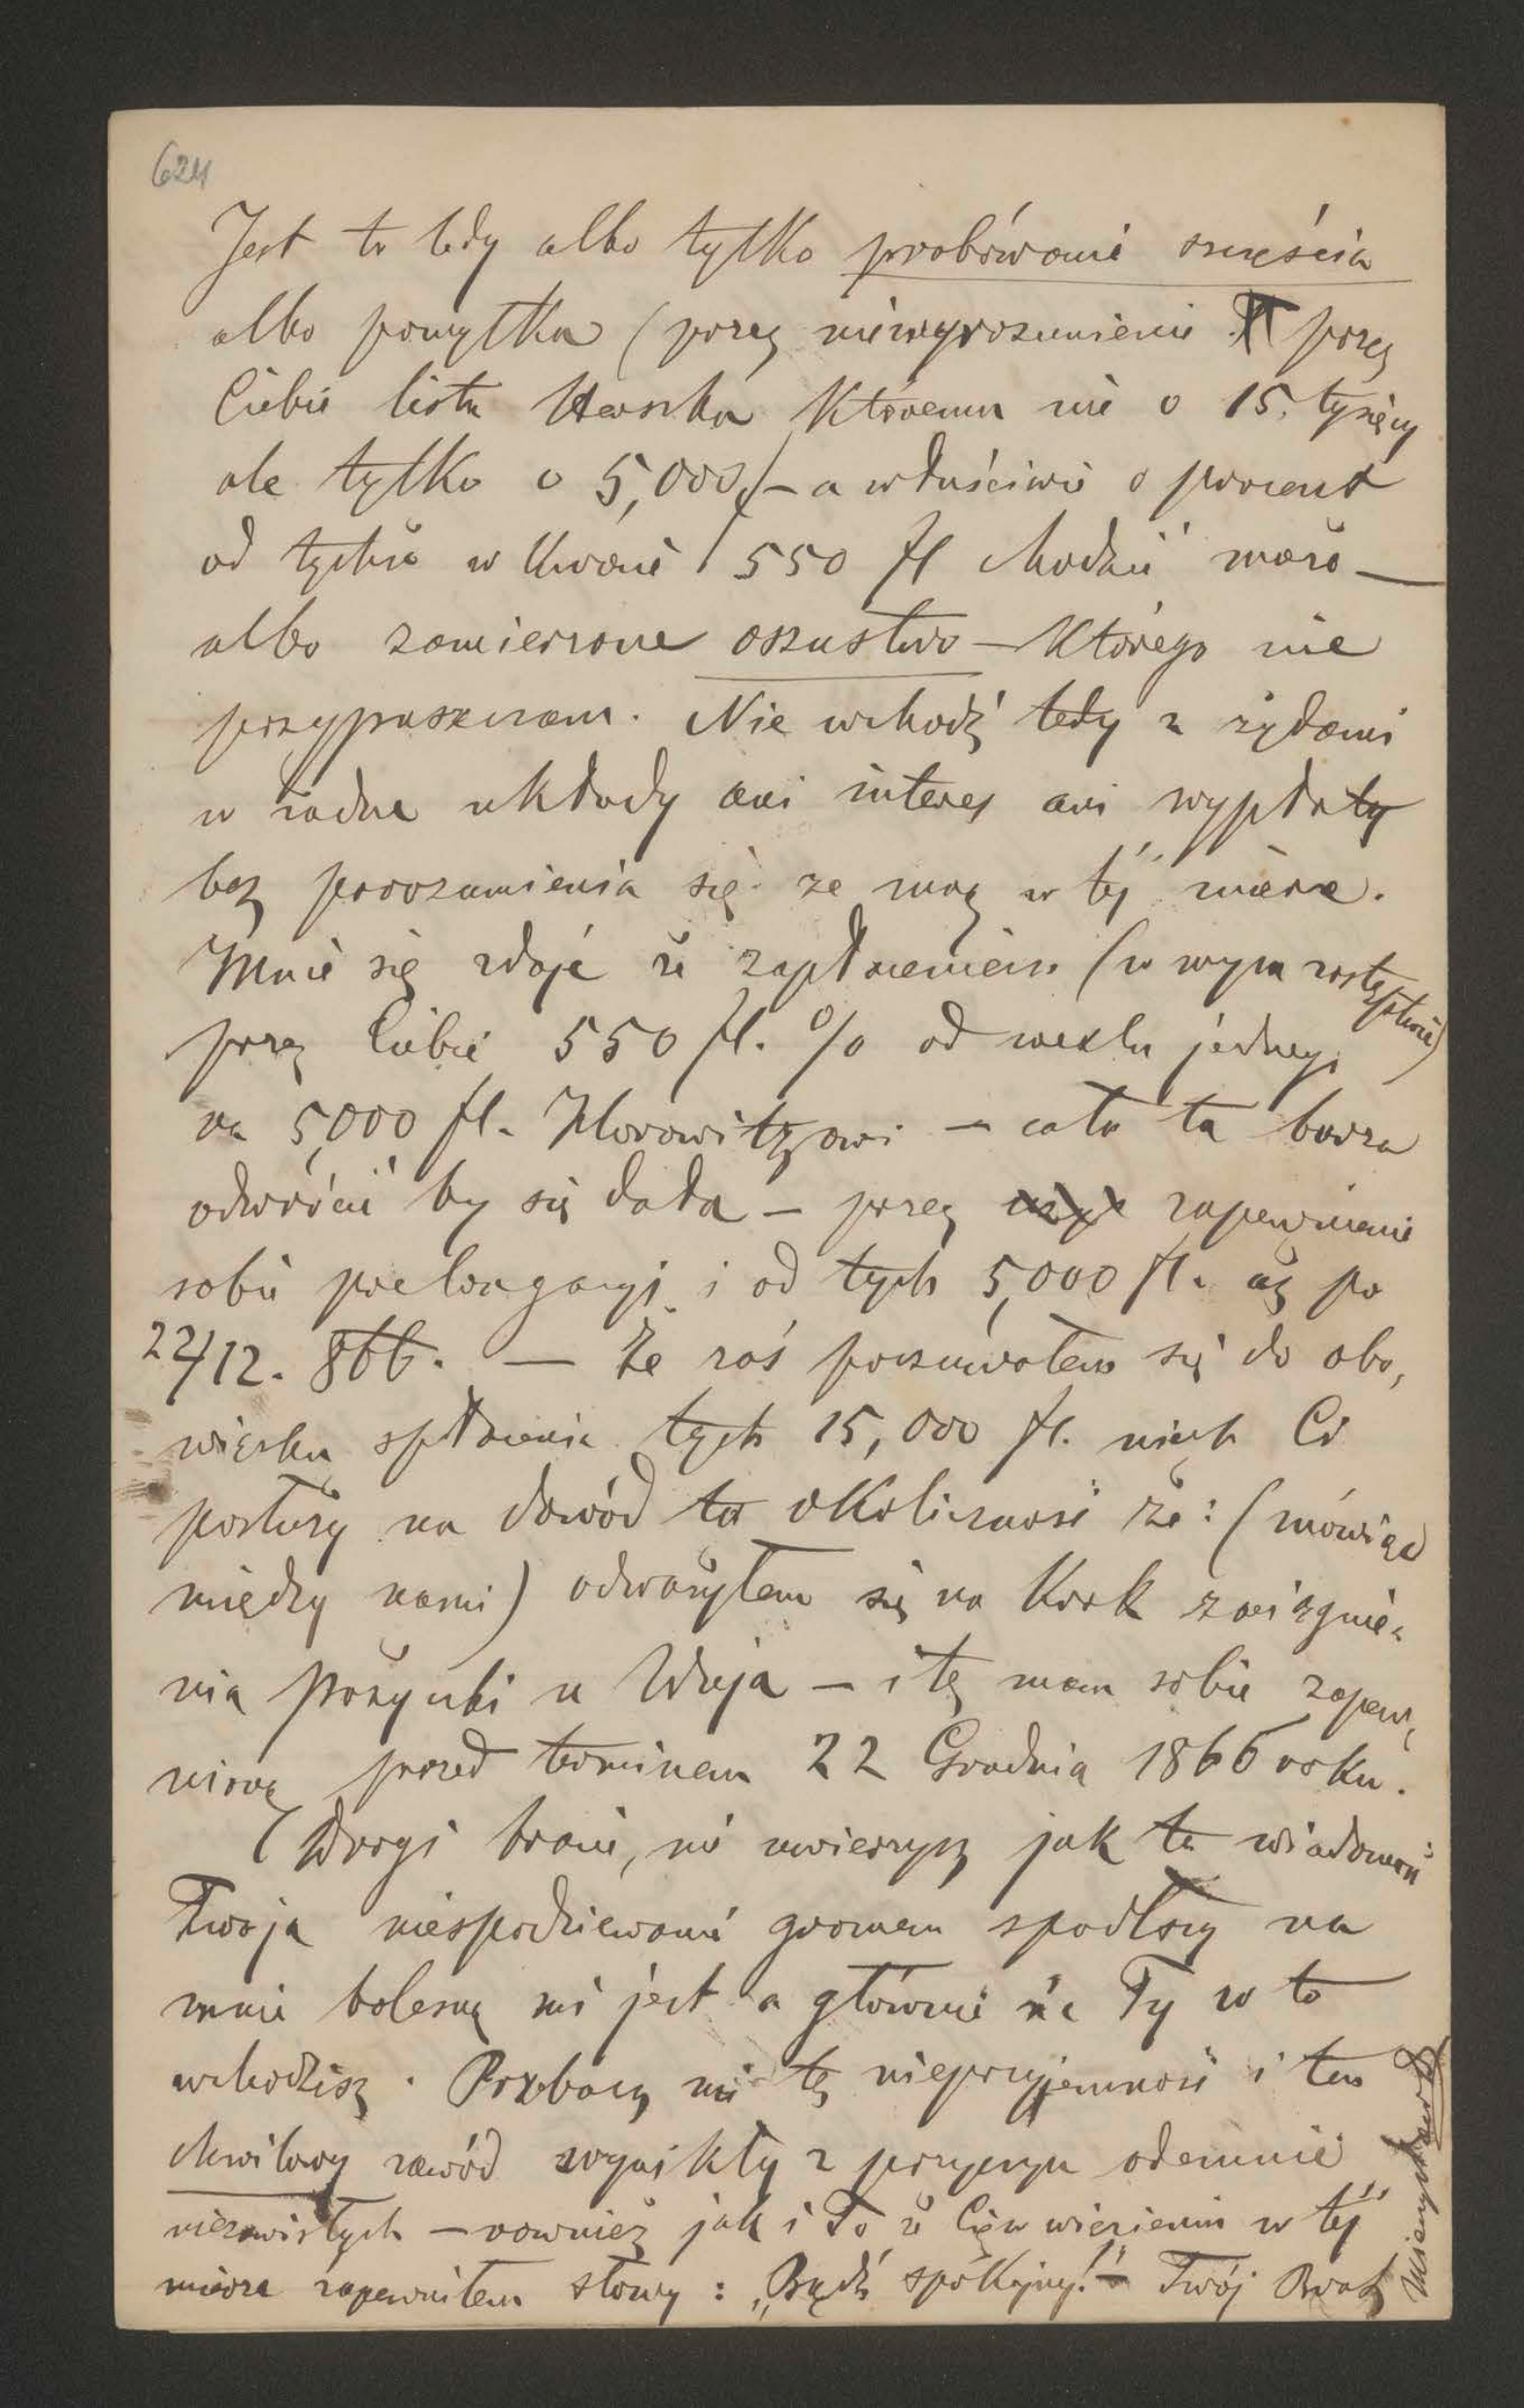 624
Jest to tedy albo tylko probówanie szczęścia
albo pomyłka (przez niewyrozumienie przez
Ciebie listu Herszka któremu nie o 15. tysięcy
ale tylko o 5,000 – a właściwie o procent
od tychże w kwocie 550 fl chodzić może —
albo zamierzone oszustwo – którego nie
przypuszczam. Nie wchodź tedy z żydami
w żadne układy ani interes ani wypłaty
bez porozumienia się ze mną w tej mierze.
Mnie się zdaje że zapłaceniem (w mym zastępstwie)
przez Ciebie 550 fl. % od wexlu jednego
na 5,000 fl. Horowitzowi – cała ta burza
odwrócić by się dała – przez zapewnienie
sobie prolongacyi i od tych 5,000 fl. aż po
22/12. 866. — Że zaś poczuwałem się do obo,
wiązku spłacenia tych 15,000 fl. niech Ci
posłuży na dowód ta okoliczność że: (mówiąc
między nami) odważyłem się na krok zaciągnie,
nia pożyczki u Wuja – i tę mam sobie zapew,
nioną przed terminem 22 Grudnia 1866 roku.
Drogi bracie, nie uwierzysz jak ta wiadomość
Twoja niespodziewanie gromem spadłszy na
mnie bolesną mi jest a głównie że Ty w to
wchodzisz. Przebacz mi tę nieprzyjemność i ten
chwilowy zawód wynikły z przyczyn odemnie
niezawisłych – rownież jak i To że Cię w więzieniu w tej
mierze zapewniłem słowy: „Bądź spokojny!" – Twój Brat
Mieczysław